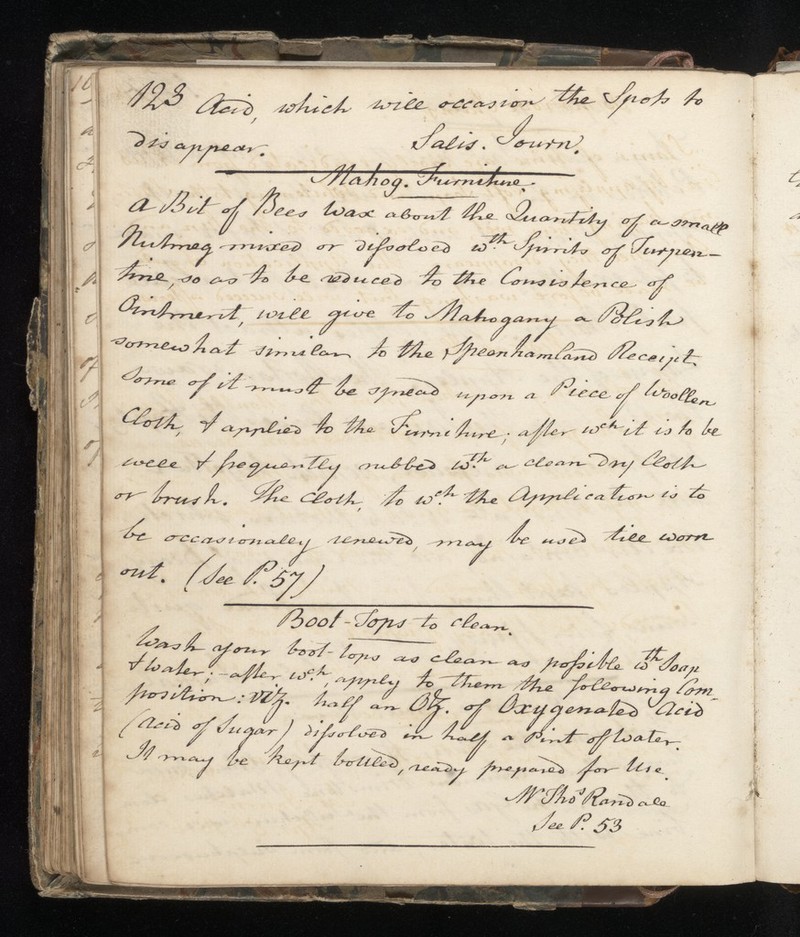 123 Acid, which will occasion the Spots to
disappear. Salis. Journ.
Mahog. Furniture.
A Bit of Bees Wax about the Quantity of a small
Nutmeg mixed or dissolved wth. Spirits of Turpen-
tine, so as to be reduced to the Consistence of
Ointment, will give to Mahogany a Polish
somewhat similar to the Speenhamland Receipt.
Some of it must be spread upon a Piece of Woollen
Cloth, & applied to the Furniture; after wch it is to be
well & frequently rubbed wth. a clean Dry Cloth
or brush. The Cloth, to wch. the Application is to
be occasionally renewed, may be used till worn
out. (See P. 57)
Boot-Tops to clean.
Wash your boot-tops as clean as possible wth Soap
& water; - after wch. apply to them the following Com-
position: viz. half an Oz. of Oxygenated Acid
(Acid of Sugar) dissolved in half a Pint of Water.
It may be kept bottled, ready prepared for Use.
Mr Thos Randall
See P. 53